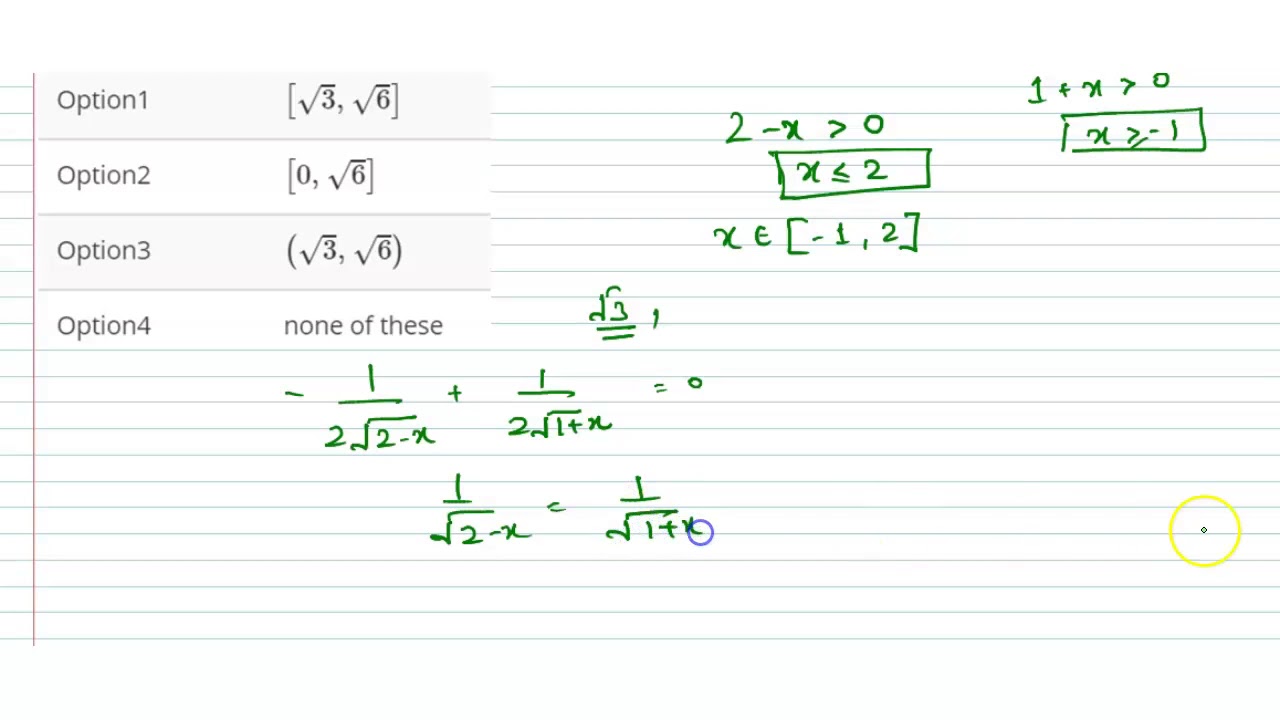 Option1 [√3, √6]
Option2 [0, √6]
Option3 (√3, √6)
Option4 none of these
1 + x > 0
x ≥ -1
2 - x > 0
x ≤ 2
x ∈ [-1, 2]
√3 ,
- 1/(2√(2-x)) + 1/(2√(1+x)) = 0
1/√(2-x) = 1/√(1+x)